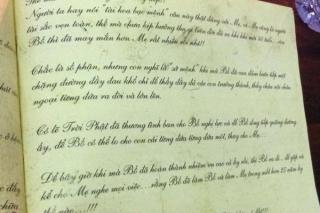 Người ta hay nói "tài hoa bạc mệnh" câu này thật đúng với Mẹ, và Mẹ cũng là người
tài sắc vẹn toàn, thế mà chưa kịp hưởng thụ gì
Bố thì đã may mắn hơn Mẹ rất nhiều rồi nhỉ!!
Chắc là số phận, nhưng con nghĩ là "sứ mệnh" khi mà Bố đã can đảm bước tiếp một
chặng đường đầy đau khổ chỉ để thấy đầy đủ các con trưởng thành, thấy cháu nội cháu
ngoại từng đứa ra đời và lớn lên.
Có lẽ Trời Phật đã thương tình ban cho Bố nghị lực và để Bố sống tiếp quãng đường
ấy, để Bố có thể lo cho con cái từng đứa từng đứa một, thay cho Mẹ.
Để bây giờ khi mà Bố đã hoàn thành nhiệm vụ cao cả ấy rồi, thì Bố ra đi để gặp và
kể cho Mẹ nghe mọi việc... rằng Bố đã làm Bố và làm Mẹ trong suốt hơn 25 năm